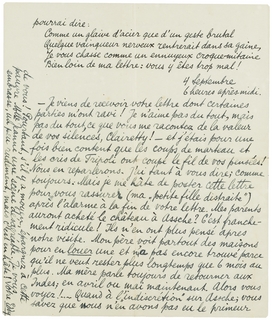 pourrai dire:
Comme un glaive d'acier que d'un geste brutal
Quelque vainqueur nerveux rentrerait dans sa gaine,
Je vous chasse comme un ennuyeux croquemitaine
Bien loin de ma lettre: vous y êtes trop mal!
4 Septembre
6 heures après midi.
— Je viens de recevoir votre lettre dont certaines
parties m'ont ravi! Je n'aime pas du tout, mais
pas du tout, ce que vous me racontez de la valeur
de vos silences, Clairetty! — et j'étais pour une
fois bien content que les coups de marteau et
les cris de Tripoli ont coupé le fil de vos pensées!
Nous en reparlerons. J'ai tant à vous dire; comme
toujours. Mais je me hâte de poster cette lettre
pour vous rassurer (ma "petite fille distraite")
après l'alarme à la fin de votre lettre. Mes parents
auront acheté le château à Assche? C'est franche-
ment ridicule! Ils n'en ont plus pensé après
notre visite. Mon père voit partout des maisons
pour en louer une et n'a pas encore trouvé parce
qu'il ne veut rester plus longtemps que 6 mois au
plus. Ma mère parle toujours de retourner aux
Indes, en avril ou mai maintenant. Alors vous
voyez!... Quant à l'"indiscrétion" sur Assche, vous
savez que nous n'en avons pas eu le primeur